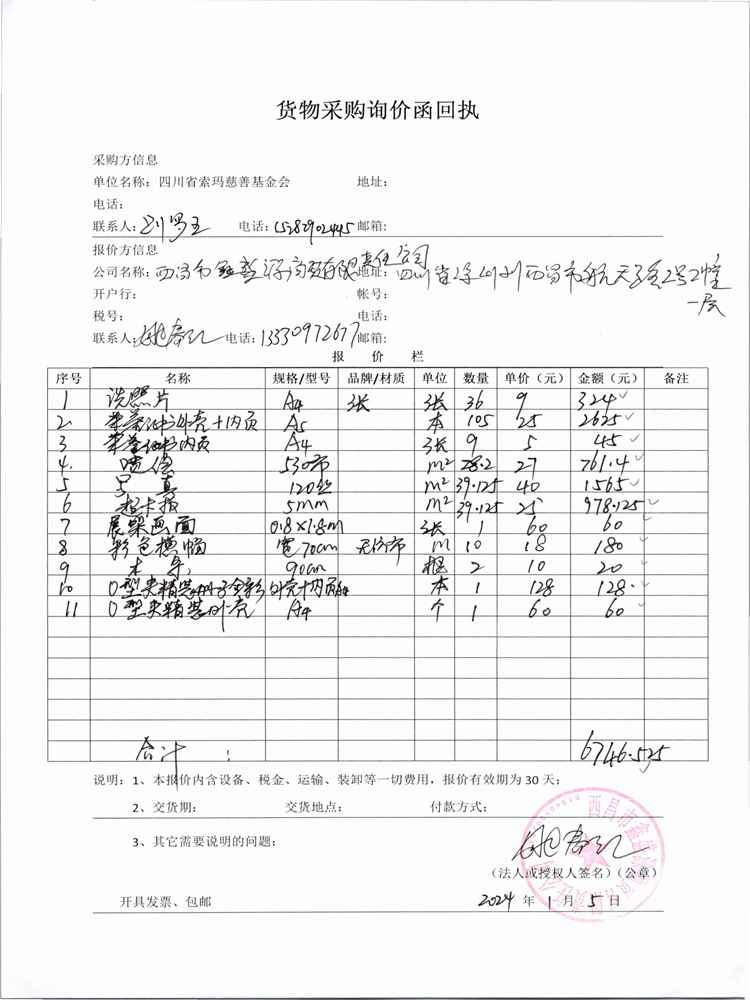 货物采购询价函回执
采购方信息
单位名称：四川省索玛慈善基金会 地址：
电话：
联系人： 电话：15282902445 邮箱：
报价方信息
公司名称：西昌市 有限责任公司 地址：四川省凉山州西昌市航天 2号2幢一层
开户行： 帐号：
税号： 电话：
联系人： 电话：13330972677 邮箱：
报 价 栏
序号 名称 规格/型号 品牌/材质 单位 数量 单价（元） 金额（元） 备注
1 洗照片 A4 张 张 36 9 324
2 外壳+内页 A5 本 105 25 2625
3 内页 A4 张 9 5 45
4. 喷绘 530布 m² 28.2 27 761.4
5 写真 120丝 m² 39.125 40 1565
6 超卡板 5mm m² 39.125 25 978.125
7 展架画面 0.8×1.8m 张 1 60 60
8 彩色横幅 宽70cm 无纺布 m 10 18 180
9 木 90cm 根 2 10 20
10 O型夹精装册子全彩外壳+内页A4 本 1 128 128
11 O型夹精装册外壳 A4 个 1 60 60
合计： 6746.525
说明：1、本报价内含设备、税金、运输、装卸等一切费用，报价有效期为30天；
2、交货期： 交货地点： 付款方式：
3、其它需要说明的问题：
（法人或授权人签名）（公章）
开具发票、包邮 2024 年 1 月 5 日